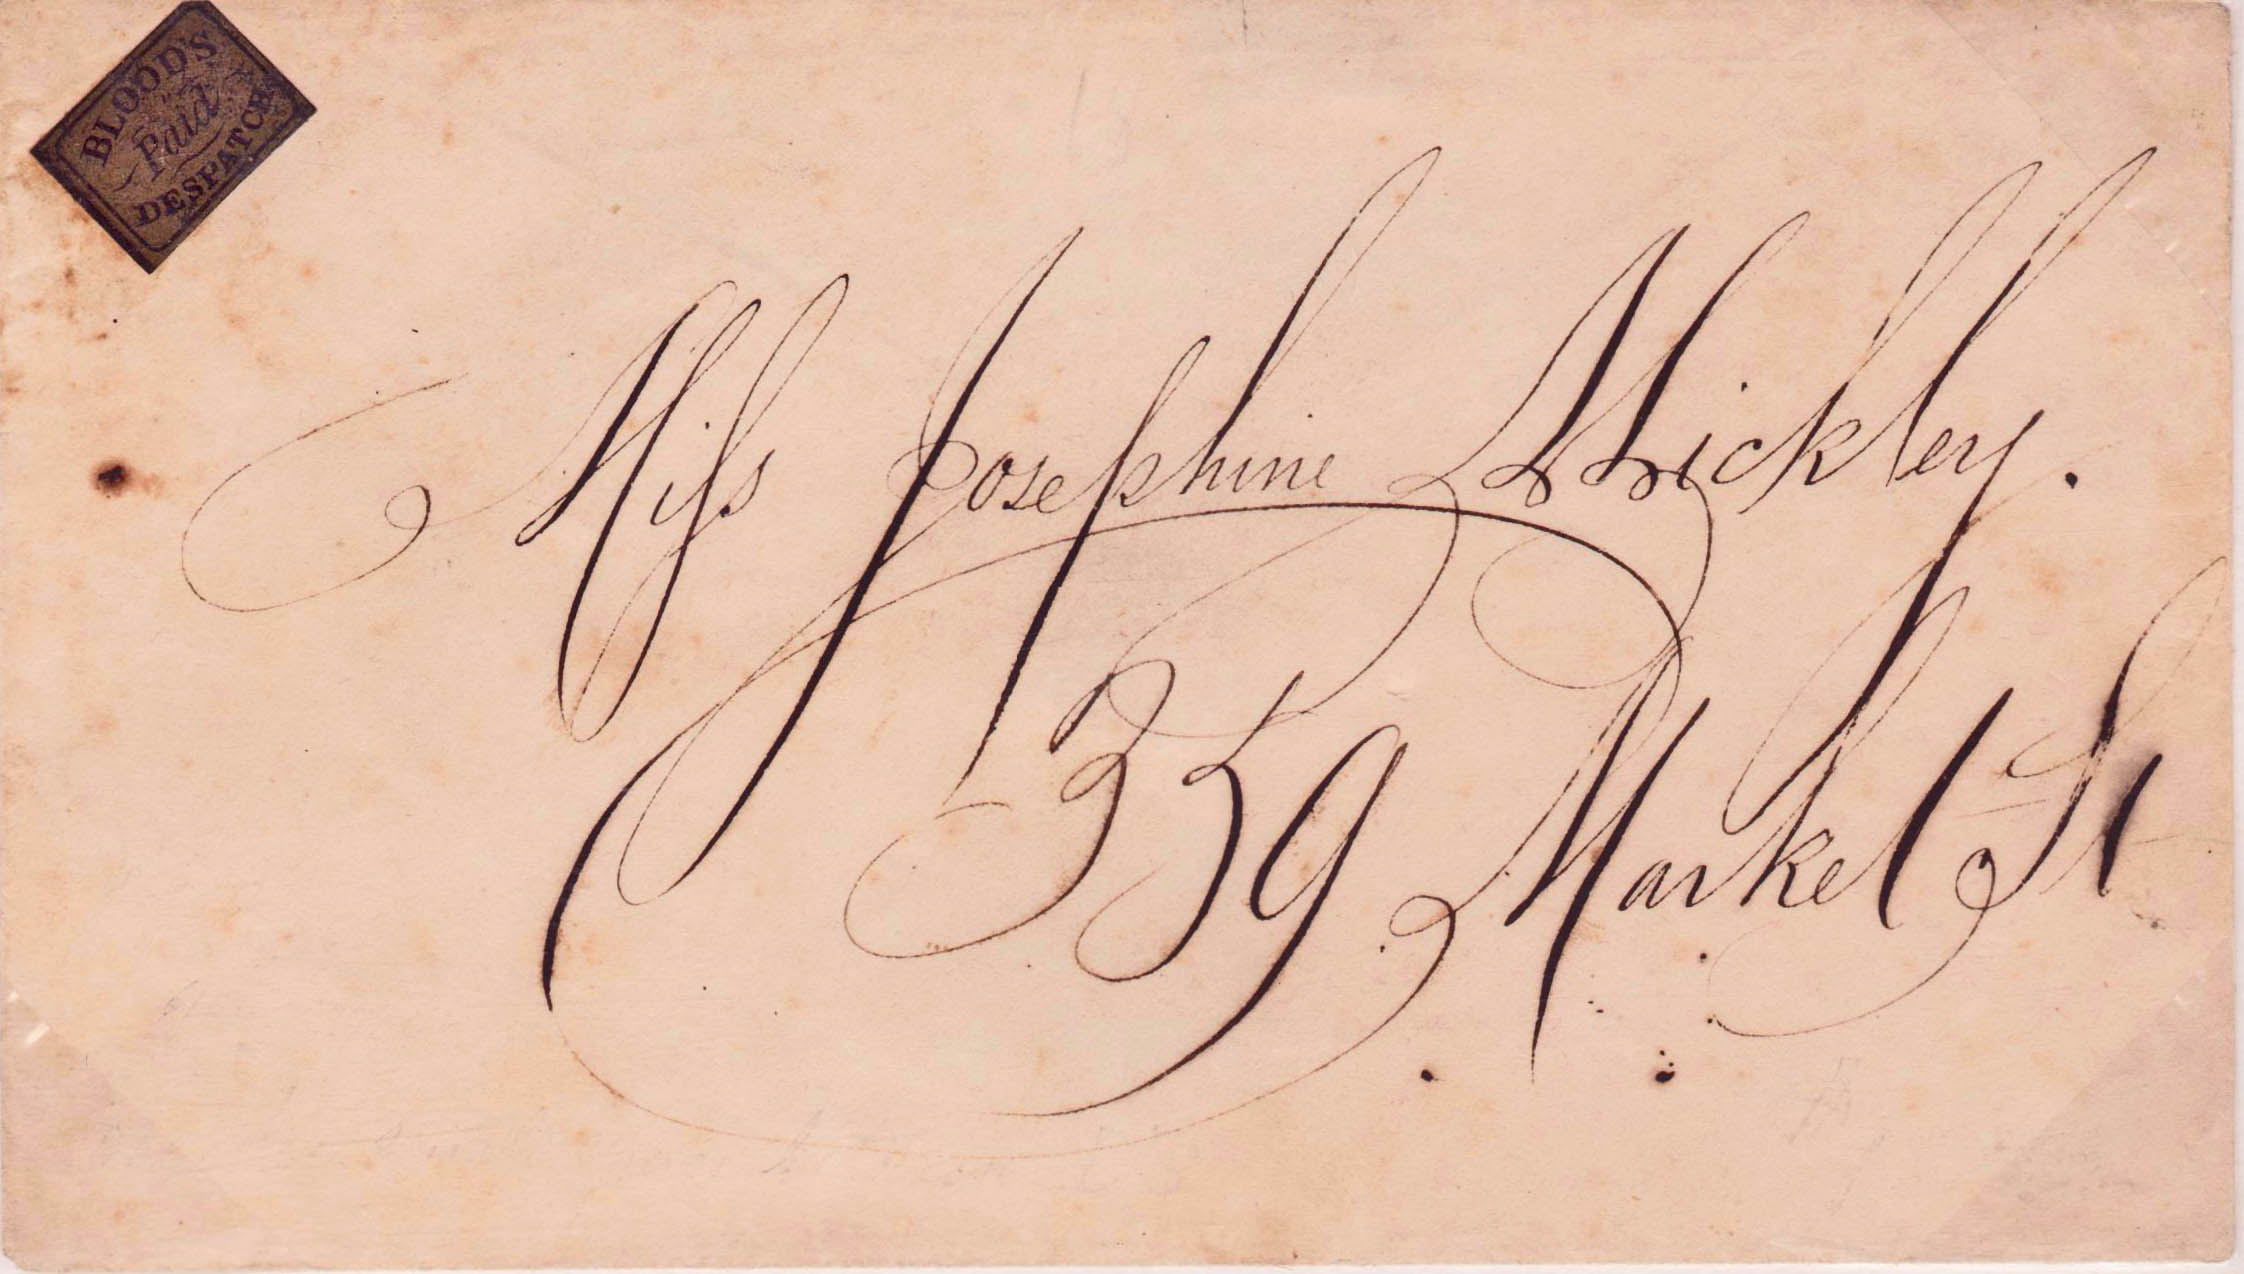 BLOOD'S
Paid
DESPATCH
Miſs Josephine Mickley.
359 Market St